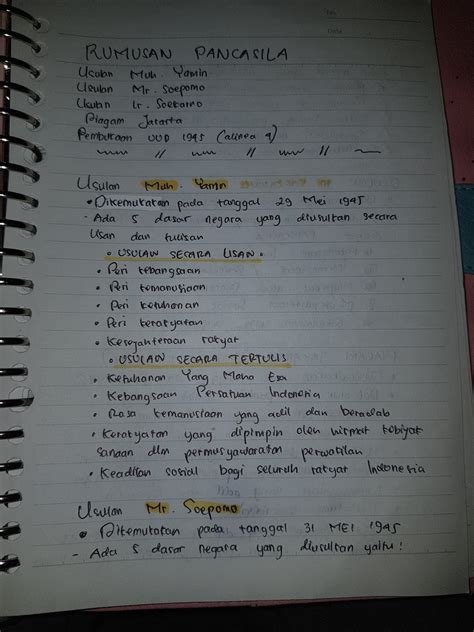 RUMUSAN PANCASILA
Usulan Muh. Yamin
Usulan Mr. Soepomo
Usulan Ir. Soekarno
Piagam Jakarta
Pembukaan UUD 1945 (alinea 4)
Usulan Muh. Yamin
• Dikemukakan pada tanggal 29 Mei 1945
- Ada 5 dasar negara yang diusulkan secara
lisan dan tulisan
• USULAN SECARA LISAN •
• Peri kebangsaan
• Peri kemanusiaan
• Peri ketuhanan
• Peri kerakyatan
• Kesejahteraan rakyat
• USULAN SECARA TERTULIS
• Ketuhanan Yang Maha Esa
• Kebangsaan Persatuan Indonesia
• Rasa kemanusiaan yang adil dan beradab
• Kerakyatan yang dipimpin oleh hikmat kebijak
sanaan dlm permusyawaratan perwakilan
• Keadilan sosial bagi seluruh rakyat Indonesia
Usulan Mr. Soepomo
• Dikemukakan pada tanggal 31 MEI 1945
- Ada 5 dasar negara yang diusulkan yaitu :